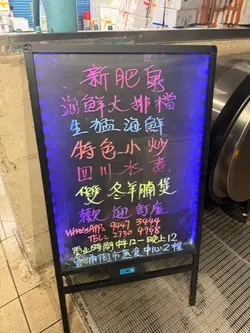 新肥員
海鮮大排檔
生猛海鮮
特色小炒
四川水煮
雙冬羊腩煲
歡迎訂座
WHATSAPP: 9447 3444
TEL: 2730 4968
營業時間 中午12-晚上12
街市熟食中心2樓